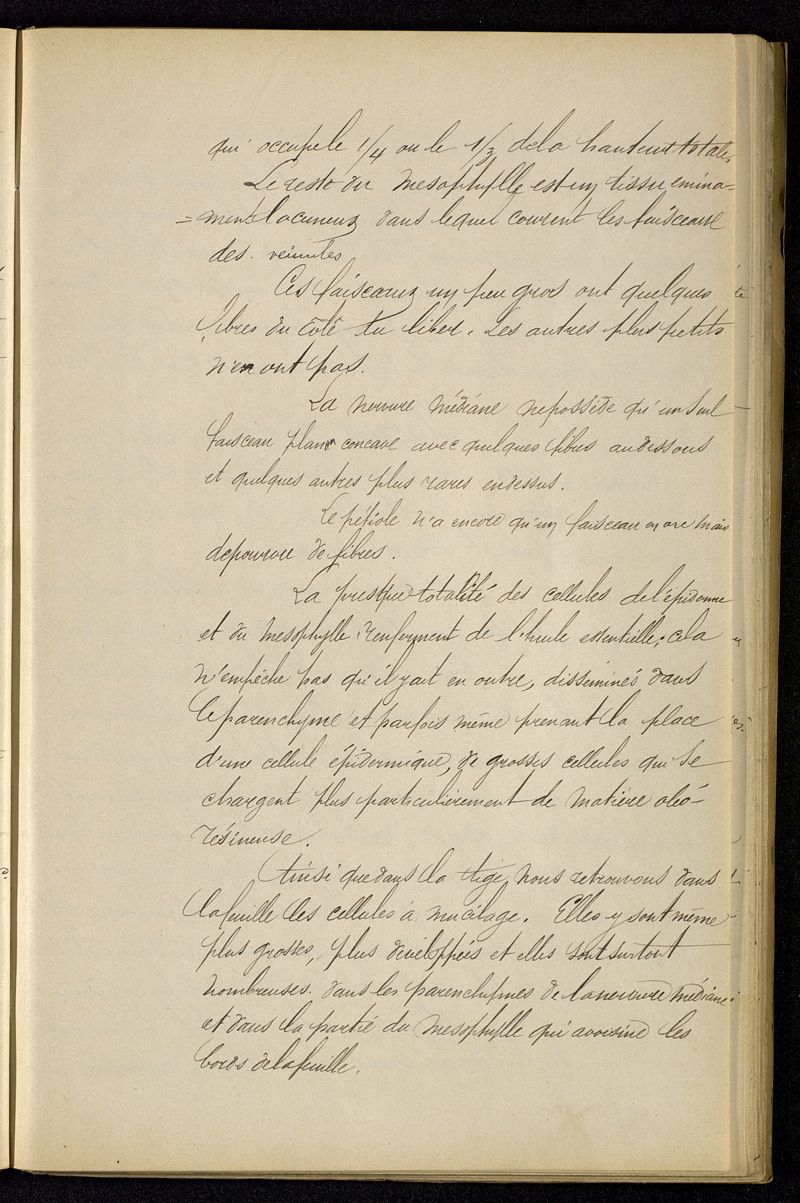 qui occupe le 1/4 ou le 1/3 de la hauteur totale.
Le reste du mesophylle est un tissu émina-
=ment lacuneux dans lequel courent les faisceaux
des veinules
Ces faisceaux un peu gros ont quelques
fibres du coté du liber. Les autres plus petits
n'en ont pas.
La nervure médiane ne possède qu'un seul
faisceau plan concave avec quelques fibres audessous
et quelques autres plus rares endessus.
Le pétiole n'a encore qu'un faisceau en arc mais
depourvu de fibres.
La presque totalité des cellules de l'épiderme
et du mesophylle renferment de l'huile essentielle; cela
n'empêche pas qu'il y ait en outre, disseminés dans
le parenchyme et parfois même prenant la place
d'une cellule épidermique, de grosses cellules qui se
chargent plus particulièrement de matière oléo-
résineuse.
Ainsi que dans la tige, nous retrouvons dans
la feuille les cellules à mucilage. Elles y sont même
plus grosses, plus développées et elles sont surtout
nombreuses dans les parenchymes de la nervure médiane
et dans la partie du mesophylle qui avoisine les
bords de la feuille.